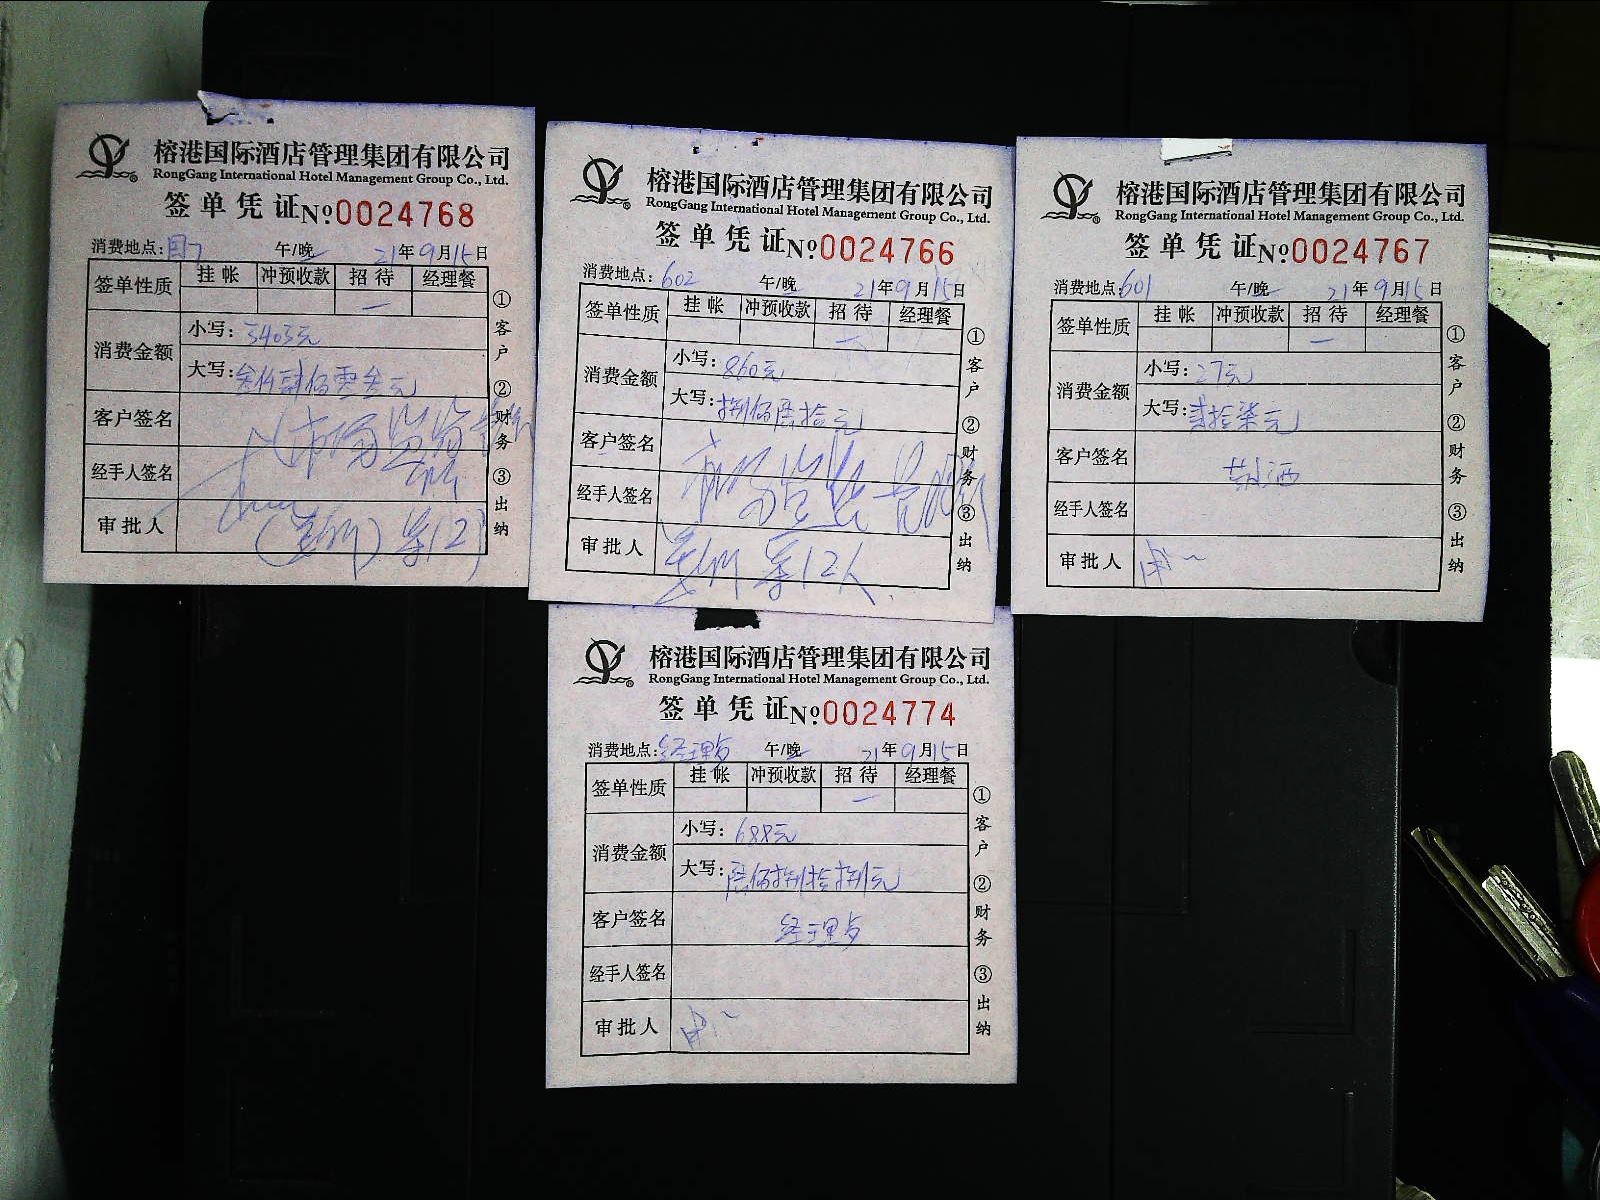 榕港国际酒店管理集团有限公司
RongGang International Hotel Management Group Co., Ltd.
签单凭证 №0024768
消费地点: 午/晚 21年9月15日
签单性质 挂帐 冲预收款 招待 经理餐
消费金额 小写: 3403元
大写: 叁仟肆佰零叁元
客户签名
经手人签名
审批人
①客户 ②财务 ③出纳
榕港国际酒店管理集团有限公司
RongGang International Hotel Management Group Co., Ltd.
签单凭证 №0024766
消费地点: 602 午/晚 21年9月15日
签单性质 挂帐 冲预收款 招待 经理餐
消费金额 小写: 860元
大写: 捌佰陆拾元
客户签名
经手人签名
审批人
①客户 ②财务 ③出纳
榕港国际酒店管理集团有限公司
RongGang International Hotel Management Group Co., Ltd.
签单凭证 №0024767
消费地点: 601 午/晚 21年9月15日
签单性质 挂帐 冲预收款 招待 经理餐
消费金额 小写: 27元
大写: 贰拾柒元
客户签名
经手人签名
审批人
①客户 ②财务 ③出纳
榕港国际酒店管理集团有限公司
RongGang International Hotel Management Group Co., Ltd.
签单凭证 №0024774
消费地点: 经理 午/晚 21年9月15日
签单性质 挂帐 冲预收款 招待 经理餐
消费金额 小写: 688元
大写: 陆佰捌拾捌元
客户签名 经理
经手人签名
审批人
①客户 ②财务 ③出纳